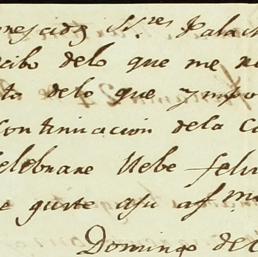 S.res Palac
cibo delo que me
to delo que ympo
Continuacion dela C
celebrare llebe feli
e guste a su af.mo
Domingo de